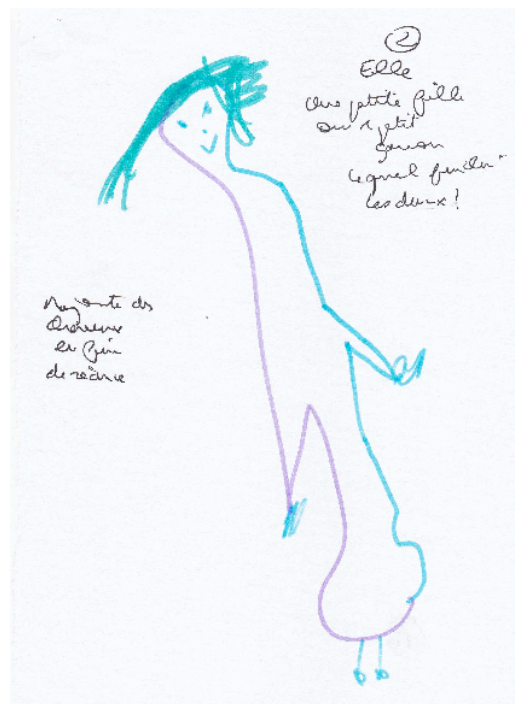 ②
Elle
une petite fille
ou 1 petit
garçon
lequel
les deux !
Rajoute des
cheveux
en fin
de séance